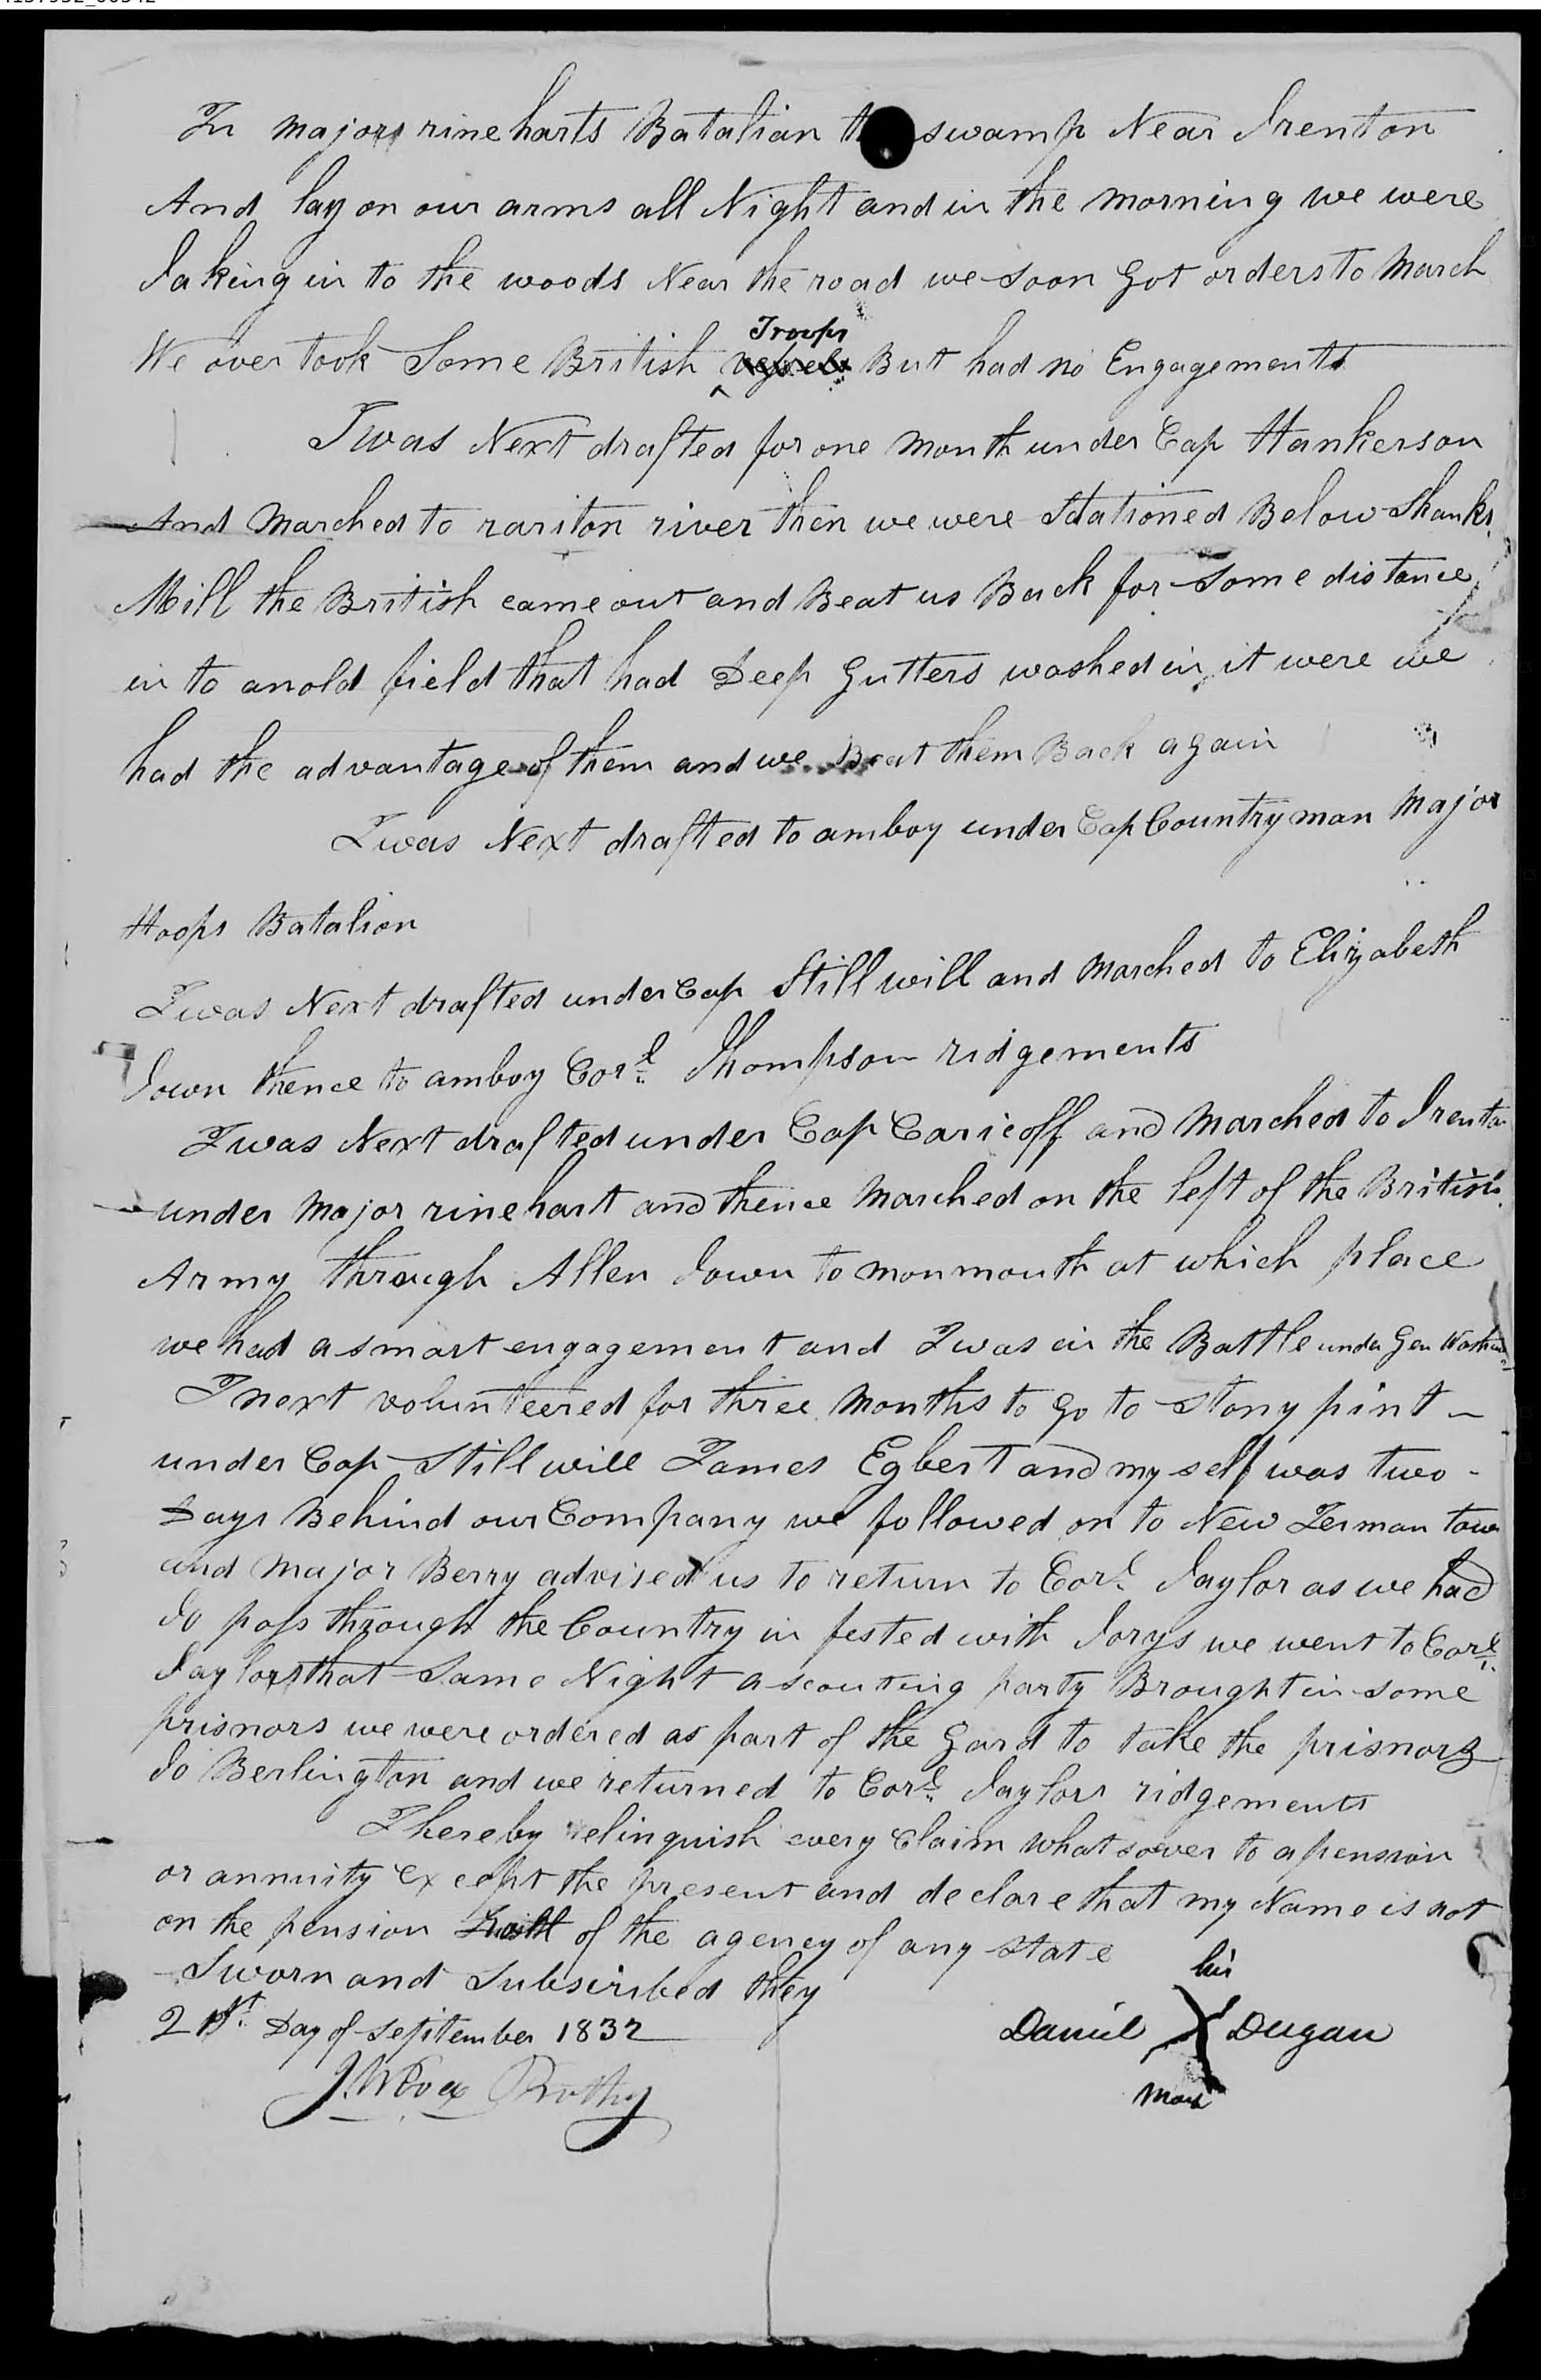 In majors rineharts Batalian th swamp Near Trenton
And lay on our arms all Night and in the morning we were
Taking in to the woods Near the road we soon Got orders to March
Troops
We over took Some British But had no Engagements
I was Next drafted for one Month under Cap Hankerson
And Marched to rariton river then we were Stationed Below Shanks
Mill the British came out and Beat us Back for Some distance
in to an old field that had Deep Gutters washed in it were we
had the advantage of them and we Beat them Back again
I was Next drafted to amboy under Cap Countryman Major
Hoops Batalion
I was Next drafted under Cap Still will and Marched to Elizabeth
Town thence to amboy Corl. Thompson ridgements
I was Next drafted under Cap Caricoff and Marched to Trenton
under Major rinehart and thence Marched on the left of the British
Army through Allen Town to monmouth at which place
we had a smart engagement and I was in the Battle under Gen Washin
I next volunteered for three Months to Go to Stony pint
under Cap Still will James Egbert and my self was two
Days Behind our Company we followed on to New Jerman town
and Major Berry advised us to return to Corl. Taylor as we had
To pass through the Country in fested with Torys we went to Corl.
Taylors that Same Night a scouting party Brought in some
prisnors we were ordered as part of the Gard to take the prisnors
To Berlington and we returned to Corl. Taylors ridgements
I hereby relinquish every Claim whatsover to a pension
or annuity Except the present and declare that my Name is not
on the pension of the agency of any State
Sworn and Subscribed they
his
21st. Day of September 1832
Daniel X Dugan
mark